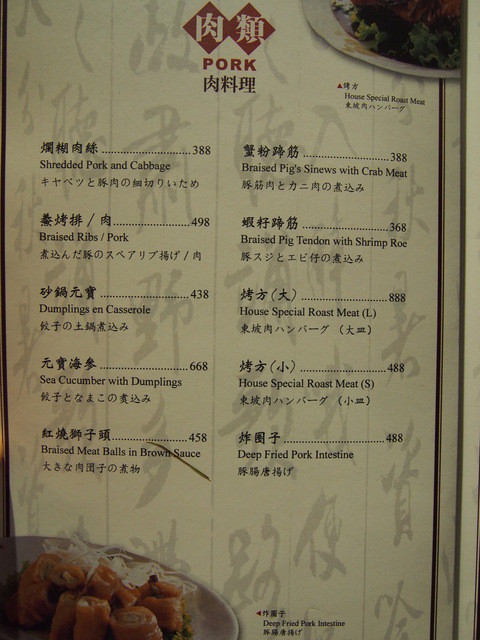 肉類
PORK
肉料理
◀烤方
House Special Roast Meat
東坡肉ハンバーグ
爛糊肉絲 388
Shredded Pork and Cabbage
キヤベツと豚肉の細切りいため
㸆烤排/肉 498
Braised Ribs / Pork
煮込んだ豚のスペアリブ揚げ/肉
砂鍋元寶 438
Dumplings en Casserole
餃子の土鍋煮込み
元寶海參 668
Sea Cucumber with Dumplings
餃子となまこの煮込み
紅燒獅子頭 458
Braised Meat Balls in Brown Sauce
大きな肉団子の煮物
蟹粉蹄筋 388
Braised Pig's Sinews with Crab Meat
豚筋肉とカニ肉の煮込み
蝦籽蹄筋 368
Braised Pig Tendon with Shrimp Roe
豚スジとエビ仔の煮込み
烤方(大) 888
House Special Roast Meat (L)
東坡肉ハンバーグ (大皿)
烤方(小) 488
House Special Roast Meat (S)
東坡肉ハンバーグ (小皿)
炸圈子 488
Deep Fried Pork Intestine
豚腸唐揚げ
◀炸圈子
Deep Fried Pork Intestine
豚腸唐揚げ